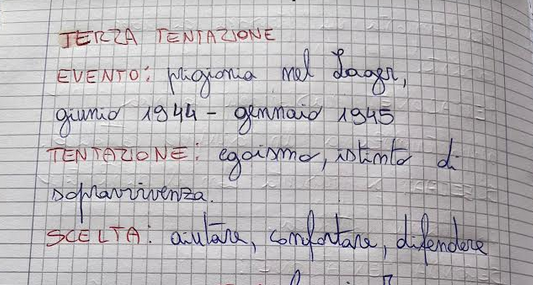 TERZA TENTAZIONE
EVENTO: prigionia nel Lager,
giunio 1944 - gennaio 1945
TENTAZIONE: egoismo, istinto di
sopravvivenza.
SCELTA: aiutare, confortare, difendere